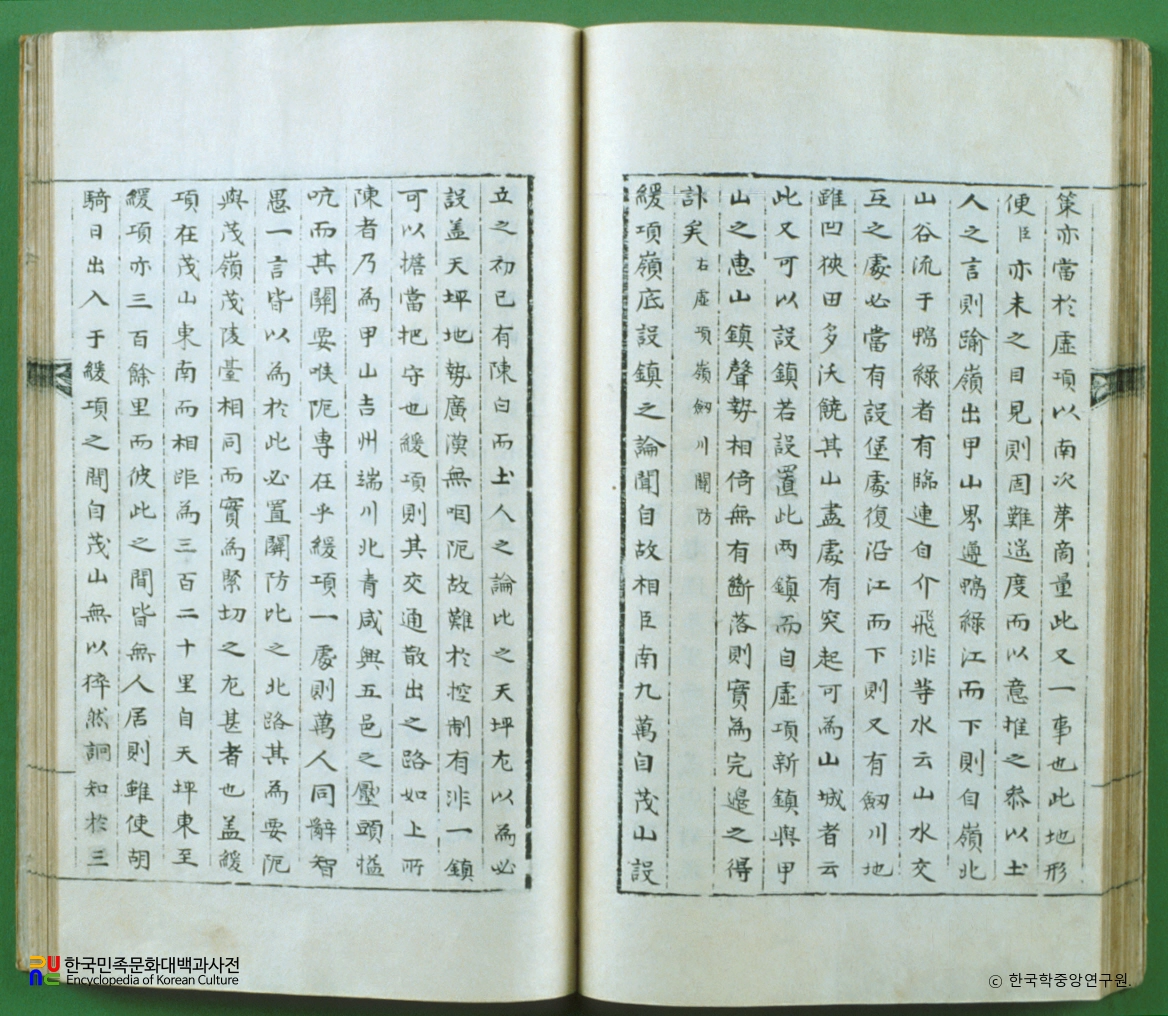 策亦當於虛項以南次第商量此又一事也此地形
便臣亦未之目見則固難遙度而以意推之參以土
人之言則踰嶺出甲山界遵鴨綠江而下則自嶺北
山谷流于鴨綠者有臨連自介飛非等水云山水交
互之處必當有設堡處復沿江而下則又有釼川地
雖凹狹田多沃饒其山盡處有突起可為山城者云
此又可以設鎮若設置此两鎮而自虛項新鎮與甲
山之惠山鎮聲勢相倚無有斷落則實為完邊之得
計矣右虛項嶺釼川關防
緩項嶺底設鎮之論聞自故相臣南九萬自茂山設
立之初已有陳白而土人之論比之天坪尤以為必
設盖天坪地勢廣漠無咽阨故難於控制有非一鎮
可以擔當把守也緩項則其交通散出之路如上所
陳者乃為甲山吉州端川北青咸興五邑之壓頭搤
吭而其關要喉阨專在乎緩項一處則萬人同辭智
愚一言皆以為於此必置關防比之北路其為要阨
與茂嶺茂陵臺相同而實為緊切之尤甚者也盖緩
項在茂山東南而相距為三百二十里自天坪東至
緩項亦三百餘里而彼此之間皆無人居則雖使胡
騎日出入于緩項之間自茂山無以猝然詗知於三
한국민족문화대백과사전
Encyclopedia of Korean Culture
ⓒ 한국학중앙연구원.